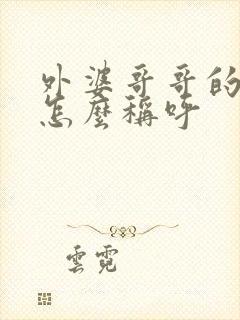 外婆哥哥的
怎麼稱呼
雲霓